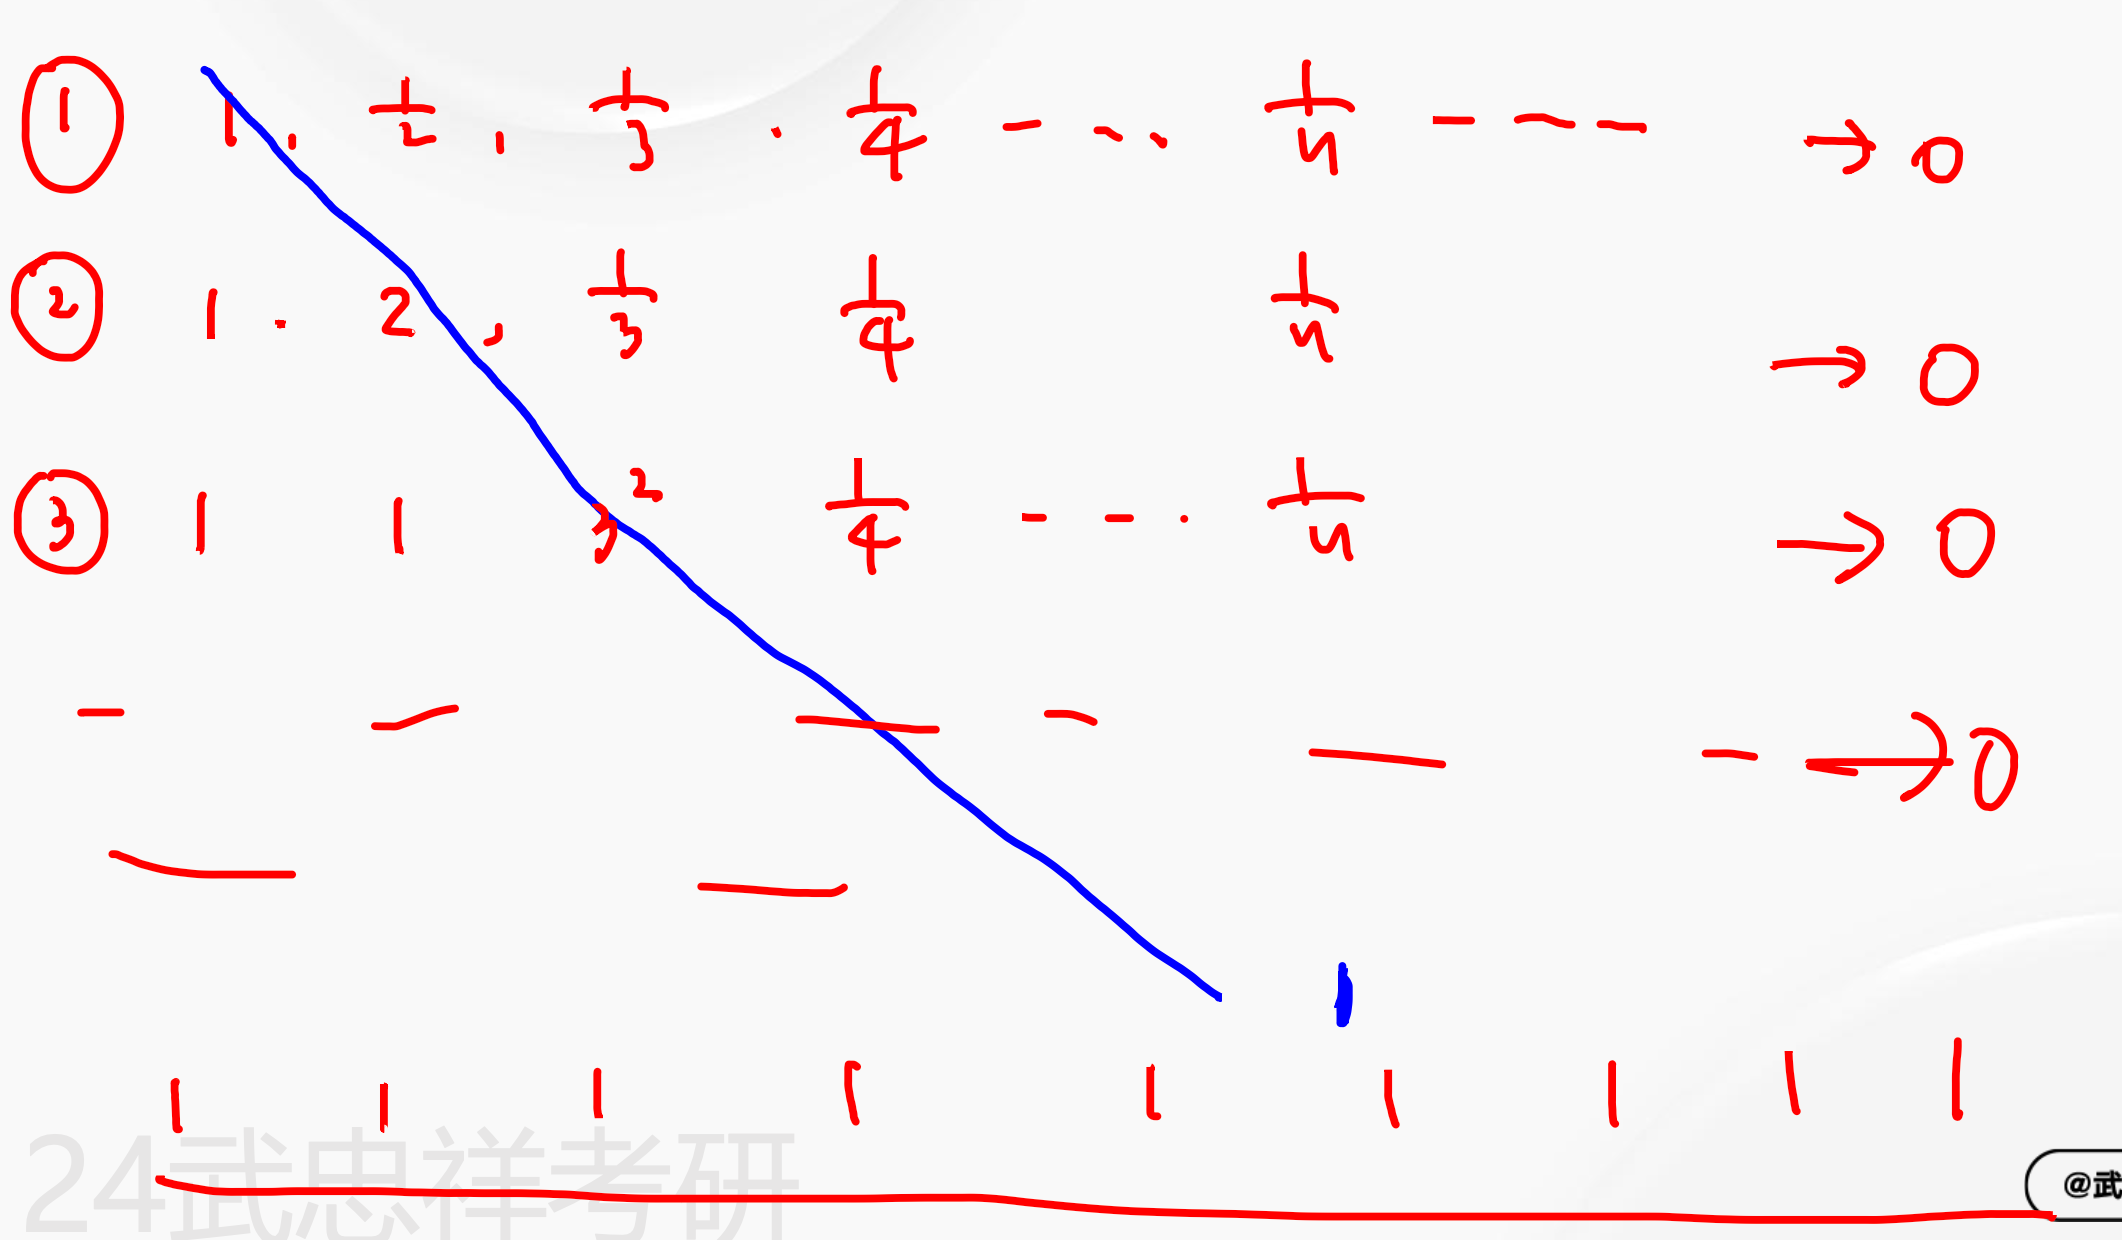 ① 1, 1/2, 1/3, 1/4 - - - 1/n - - - → 0
② 1, 2, 1/3 1/4 1/n → 0
③ 1 1 3² 1/4 - - - 1/n → 0
→ 0
1 1 1 1 1 1 1 1 1
24武忠祥考研
@武